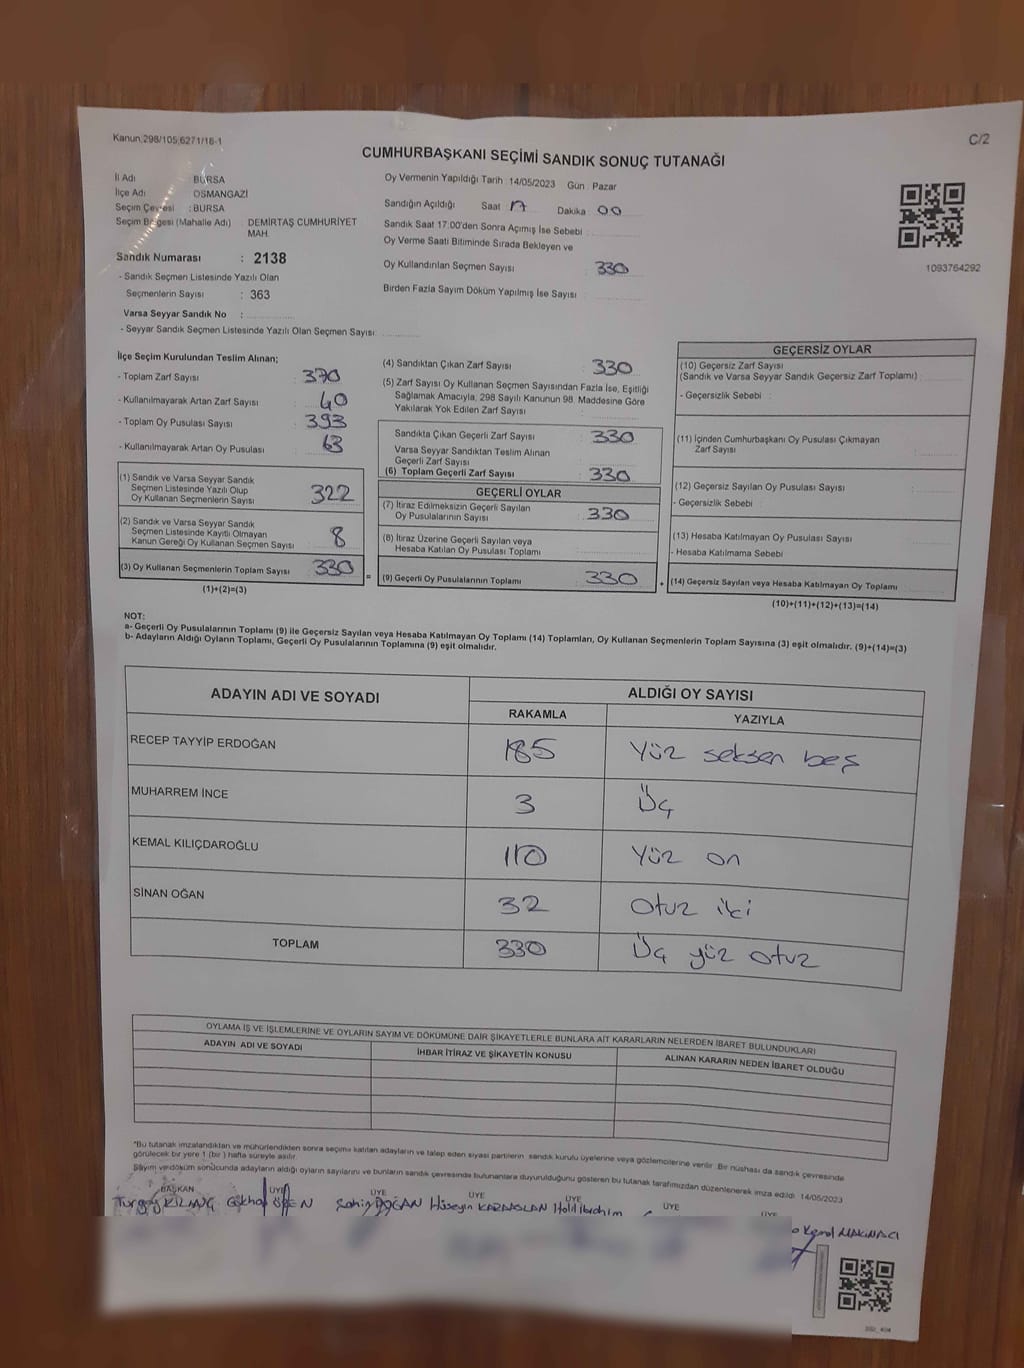 Kanun;298/105;6271/18-1
C/2
CUMHURBAŞKANI SEÇİMİ SANDIK SONUÇ TUTANAĞI
İl Adı : BURSA
İlçe Adı : OSMANGAZİ
Seçim Çevresi : BURSA
Seçim Bölgesi (Mahalle Adı) : DEMİRTAŞ CUMHURİYET MAH.
Sandık Numarası : 2138
- Sandık Seçmen Listesinde Yazılı Olan
Seçmenlerin Sayısı : 363
Varsa Seyyar Sandık No :
- Seyyar Sandık Seçmen Listesinde Yazılı Olan Seçmen Sayısı
Oy Vermenin Yapıldığı Tarih : 14/05/2023 Gün : Pazar
Sandığın Açıldığı Saat 17 Dakika 00
Sandık Saat 17:00'den Sonra Açımış İse Sebebi
Oy Verme Saati Bitiminde Sırada Bekleyen ve
Oy Kullandırılan Seçmen Sayısı : 330
Birden Fazla Sayım Döküm Yapılmış İse Sayısı :
1093764292
İlçe Seçim Kurulundan Teslim Alınan;
- Toplam Zarf Sayısı : 370
- Kullanılmayarak Artan Zarf Sayısı : 40
- Toplam Oy Pusulası Sayısı : 393
- Kullanılmayarak Artan Oy Pusulası : 63
(1) Sandık ve Varsa Seyyar Sandık
Seçmen Listesinde Yazılı Olup
Oy Kullanan Seçmenlerin Sayısı 322
(2) Sandık ve Varsa Seyyar Sandık
Seçmen Listesinde Kayıtlı Olmayan
Kanun Gereği Oy Kullanan Seçmen Sayısı 8
(3) Oy Kullanan Seçmenlerin Toplam Sayısı 330
(1)+(2)=(3)
=
(4) Sandıktan Çıkan Zarf Sayısı : 330
(5) Zarf Sayısı Oy Kullanan Seçmen Sayısından Fazla İse, Eşitliği
Sağlamak Amacıyla, 298 Sayılı Kanunun 98. Maddesine Göre
Yakılarak Yok Edilen Zarf Sayısı :
Sandıkta Çıkan Geçerli Zarf Sayısı : 330
Varsa Seyyar Sandıktan Teslim Alınan
Geçerli Zarf Sayısı
(6) Toplam Geçerli Zarf Sayısı : 330
GEÇERLİ OYLAR
(7) İtiraz Edilmeksizin Geçerli Sayılan
Oy Pusulalarının Sayısı : 330
(8) İtiraz Üzerine Geçerli Sayılan veya
Hesaba Katılan Oy Pusulası Toplamı
(9) Geçerli Oy Pusulalarının Toplamı : 330
+
GEÇERSİZ OYLAR
(10) Geçersiz Zarf Sayısı
(Sandık ve Varsa Seyyar Sandık Geçersiz Zarf Toplamı) :
- Geçersizlik Sebebi :
(11) İçinden Cumhurbaşkanı Oy Pusulası Çıkmayan
Zarf Sayısı
(12) Geçersiz Sayılan Oy Pusulası Sayısı
- Geçersizlik Sebebi
(13) Hesaba Katılmayan Oy Pusulası Sayısı
- Hesaba Katılmama Sebebi
(14) Geçersiz Sayılan veya Hesaba Katılmayan Oy Toplamı
(10)+(11)+(12)+(13)=(14)
NOT:
a- Geçerli Oy Pusulalarının Toplamı (9) ile Geçersiz Sayılan veya Hesaba Katılmayan Oy Toplamı (14) Toplamları, Oy Kullanan Seçmenlerin Toplam Sayısına (3) eşit olmalıdır. (9)+(14)=(3)
b- Adayların Aldığı Oyların Toplamı, Geçerli Oy Pusulalarının Toplamına (9) eşit olmalıdır.
ADAYIN ADI VE SOYADI
ALDIĞI OY SAYISI
RAKAMLA YAZIYLA
RECEP TAYYİP ERDOĞAN 185 Yüz seksen beş
MUHARREM İNCE 3 Üç
KEMAL KILIÇDAROĞLU 110 Yüz on
SİNAN OĞAN 32 Otuz iki
TOPLAM 330 Üç yüz otuz
OYLAMA İŞ VE İŞLEMLERİNE VE OYLARIN SAYIM VE DÖKÜMÜNE DAİR ŞİKAYETLERLE BUNLARA AİT KARARLARIN NELERDEN İBARET BULUNDUKLARI
ADAYIN ADI VE SOYADI İHBAR İTİRAZ VE ŞİKAYETİN KONUSU ALINAN KARARIN NEDEN İBARET OLDUĞU
*Bu tutanak imzalandıktan ve mühürlendikten sonra seçime katılan adayların ve talep eden siyasi partilerin sandık kurulu üyelerine veya gözlemcilerine verilir. Bir nüshası da sandık çevresinde
görülecek bir yere 1 (bir ) hafta süreyle asılır.
Sayım ve döküm sonucunda adayların aldığı oyların sayılarını ve bunların sandık çevresinde bulunanlara duyurulduğunu gösteren bu tutanak tarafımızdan düzenlenerek imza edildi. 14/05/2023
BAŞKAN ÜYE ÜYE ÜYE ÜYE ÜYE ÜYE
Turgay KILINÇ Gökhan Şahin DOĞAN Hüseyin KARAASLAN Halil İbrahim
Kemal